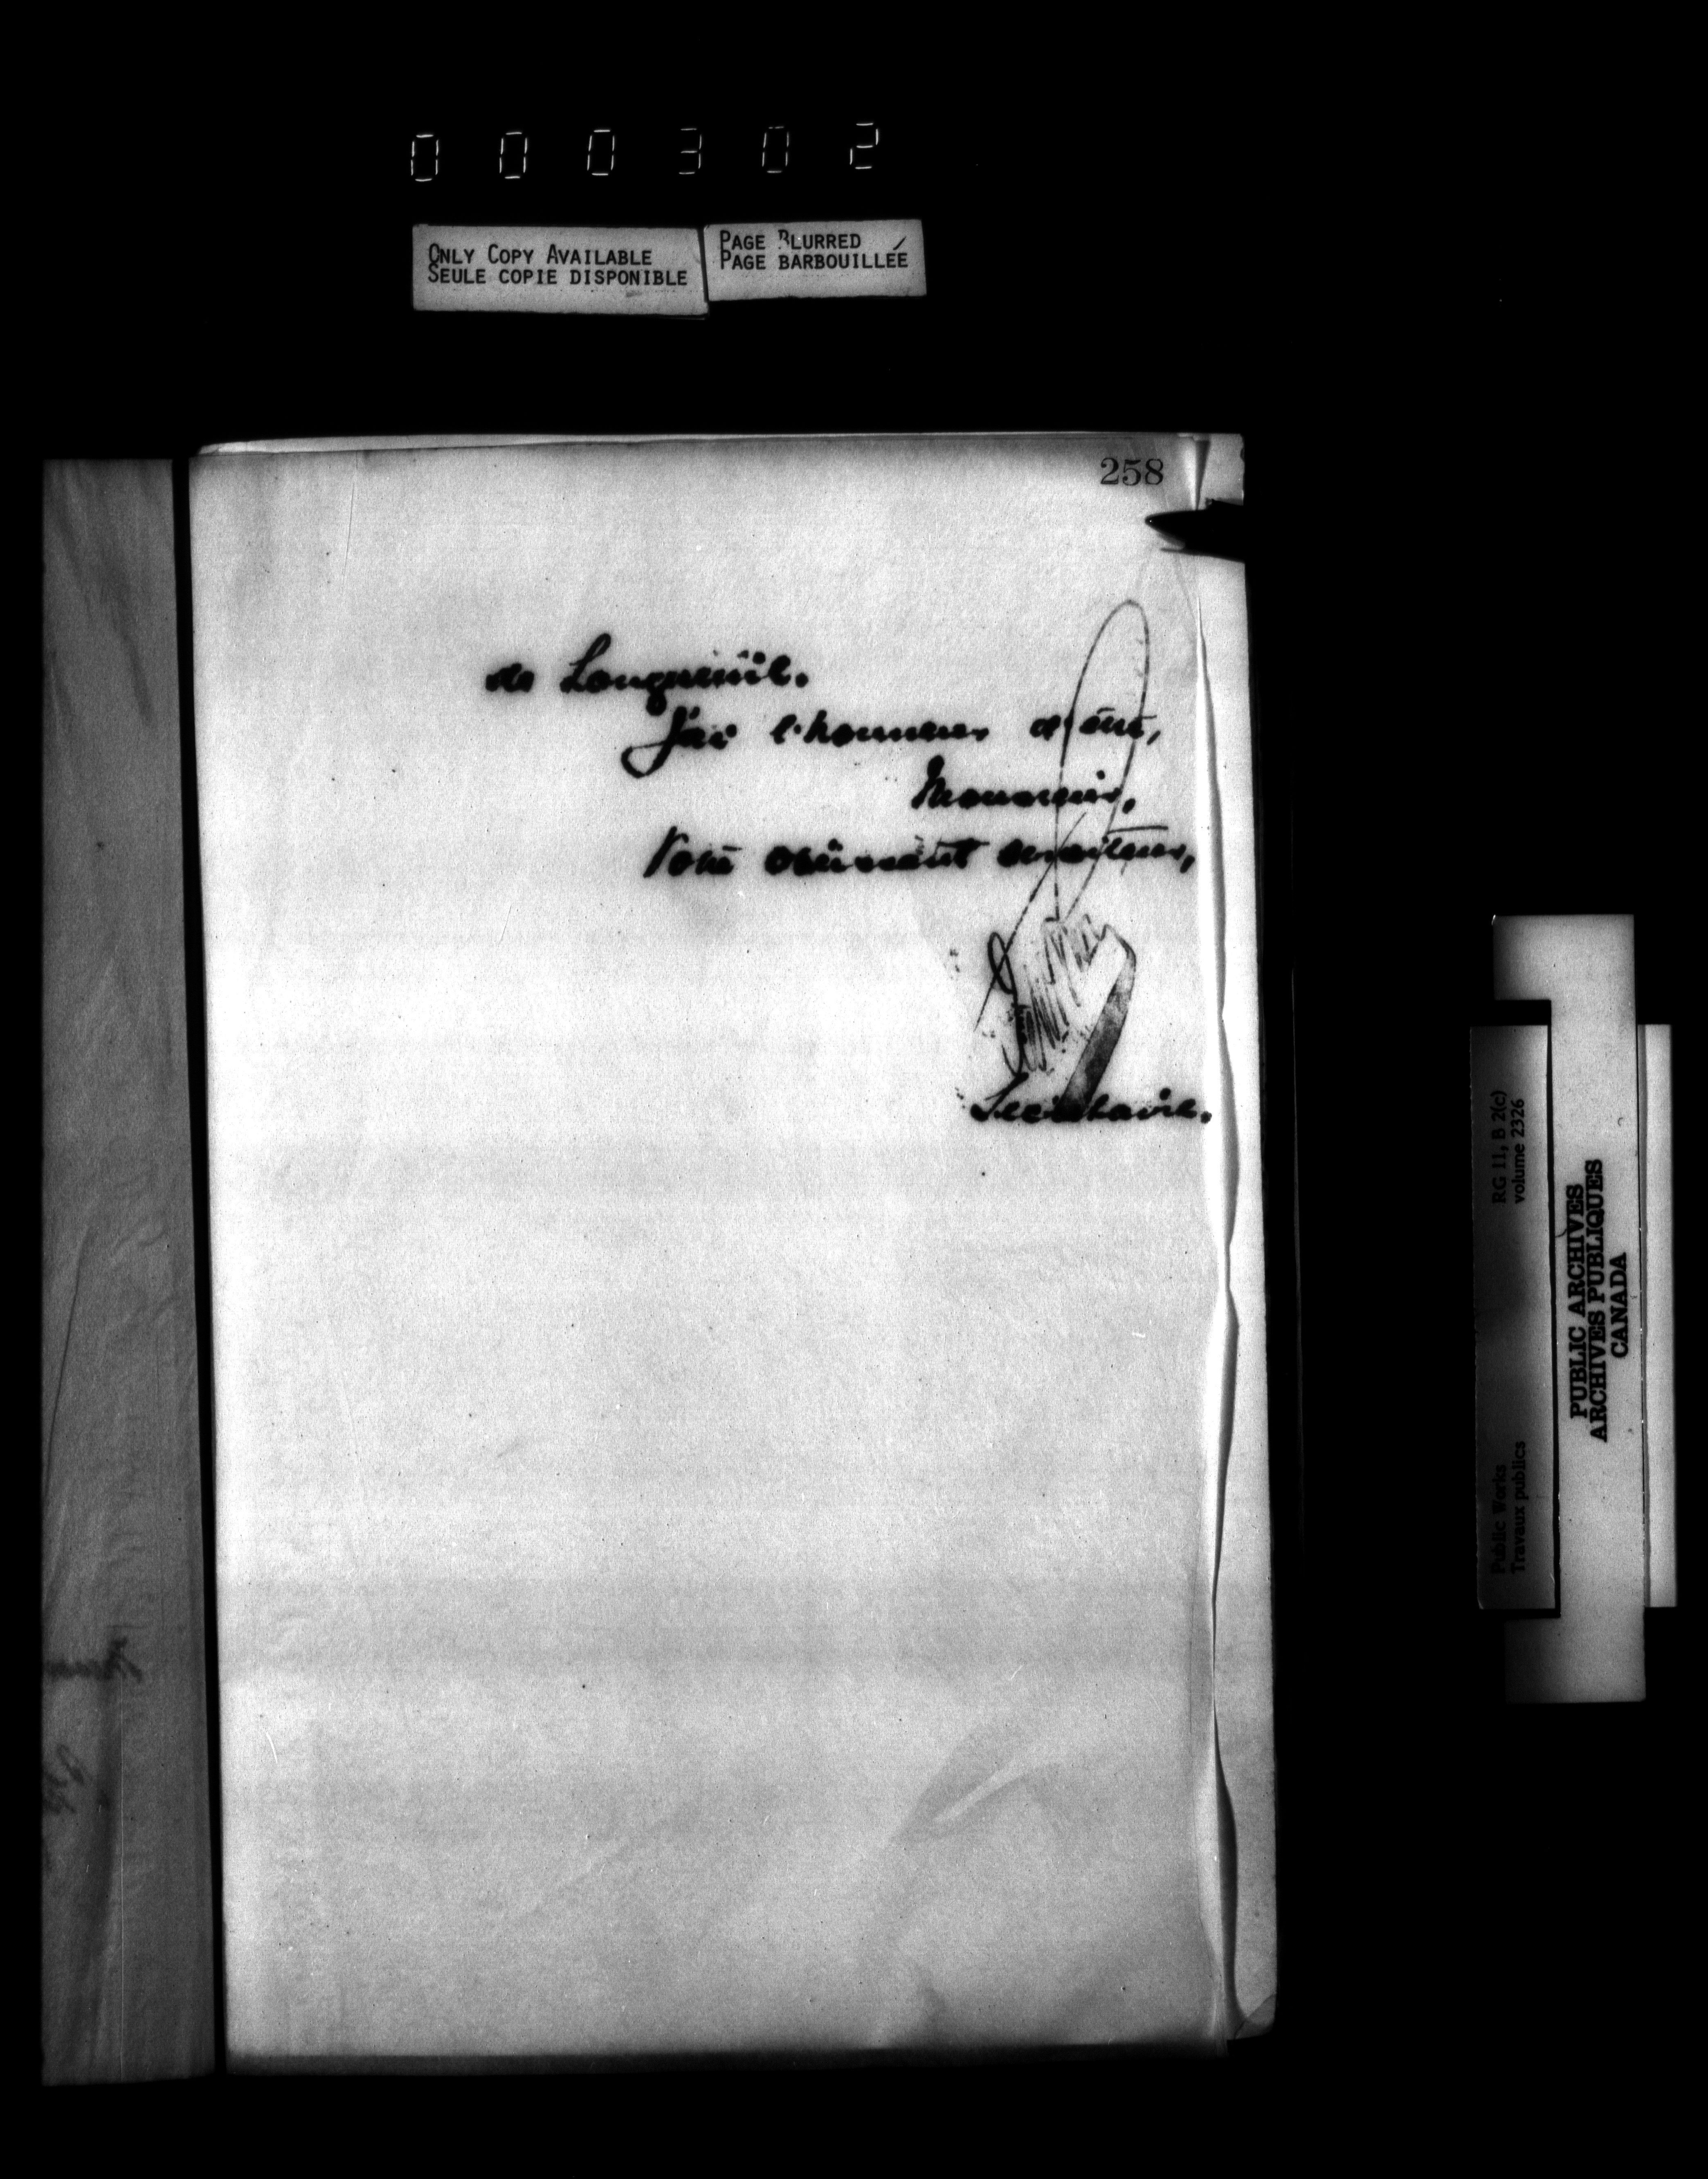 000302
ONLY COPY AVAILABLE
SEULE COPIE DISPONIBLE
PAGE BLURRED
PAGE BARBOUILLÉE
258
de Longueuil.
J'ai l'honneur d'être,
Monsieur,
Votre obéissant serviteur,
Secrétaire.
RG 11, B 2(c)
volume 2326
Public Works
Travaux publics
PUBLIC ARCHIVES
ARCHIVES PUBLIQUES
CANADA